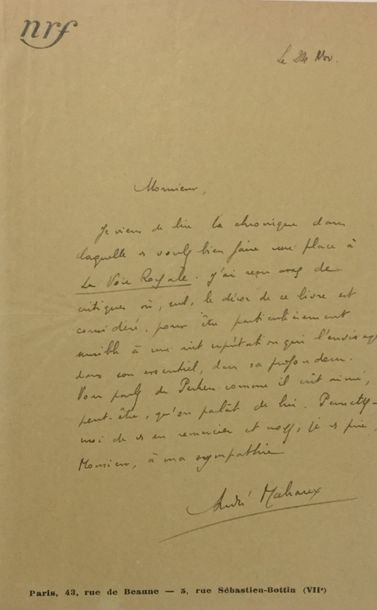 nrf
Le 24 Nov.
Monsieur,
Je viens de lire la chronique dans
laquelle vs voulez bien faire une place à
La Voie Royale. J'ai reçu assez de
critiques où, seul, le décor de ce livre est
considéré, pour être particulièrement
sensible à une interprétation qui l'envisage
dans son essentiel, dans sa profondeur.
Vous parlez de Perken comme il eût aimé,
peut-être, qu'on parlât de lui. Permettez-
moi de vs en remercier et croyez, je vs prie,
Monsieur, à ma sympathie
André Malraux
Paris, 43, rue de Beaune — 5, rue Sébastien-Bottin (VIIᵉ)